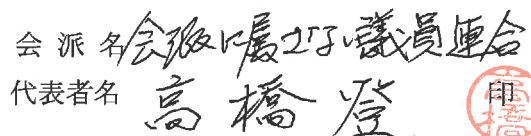 会派名 会派に属さない議員連合
代表者名 高橋登 印
高橋